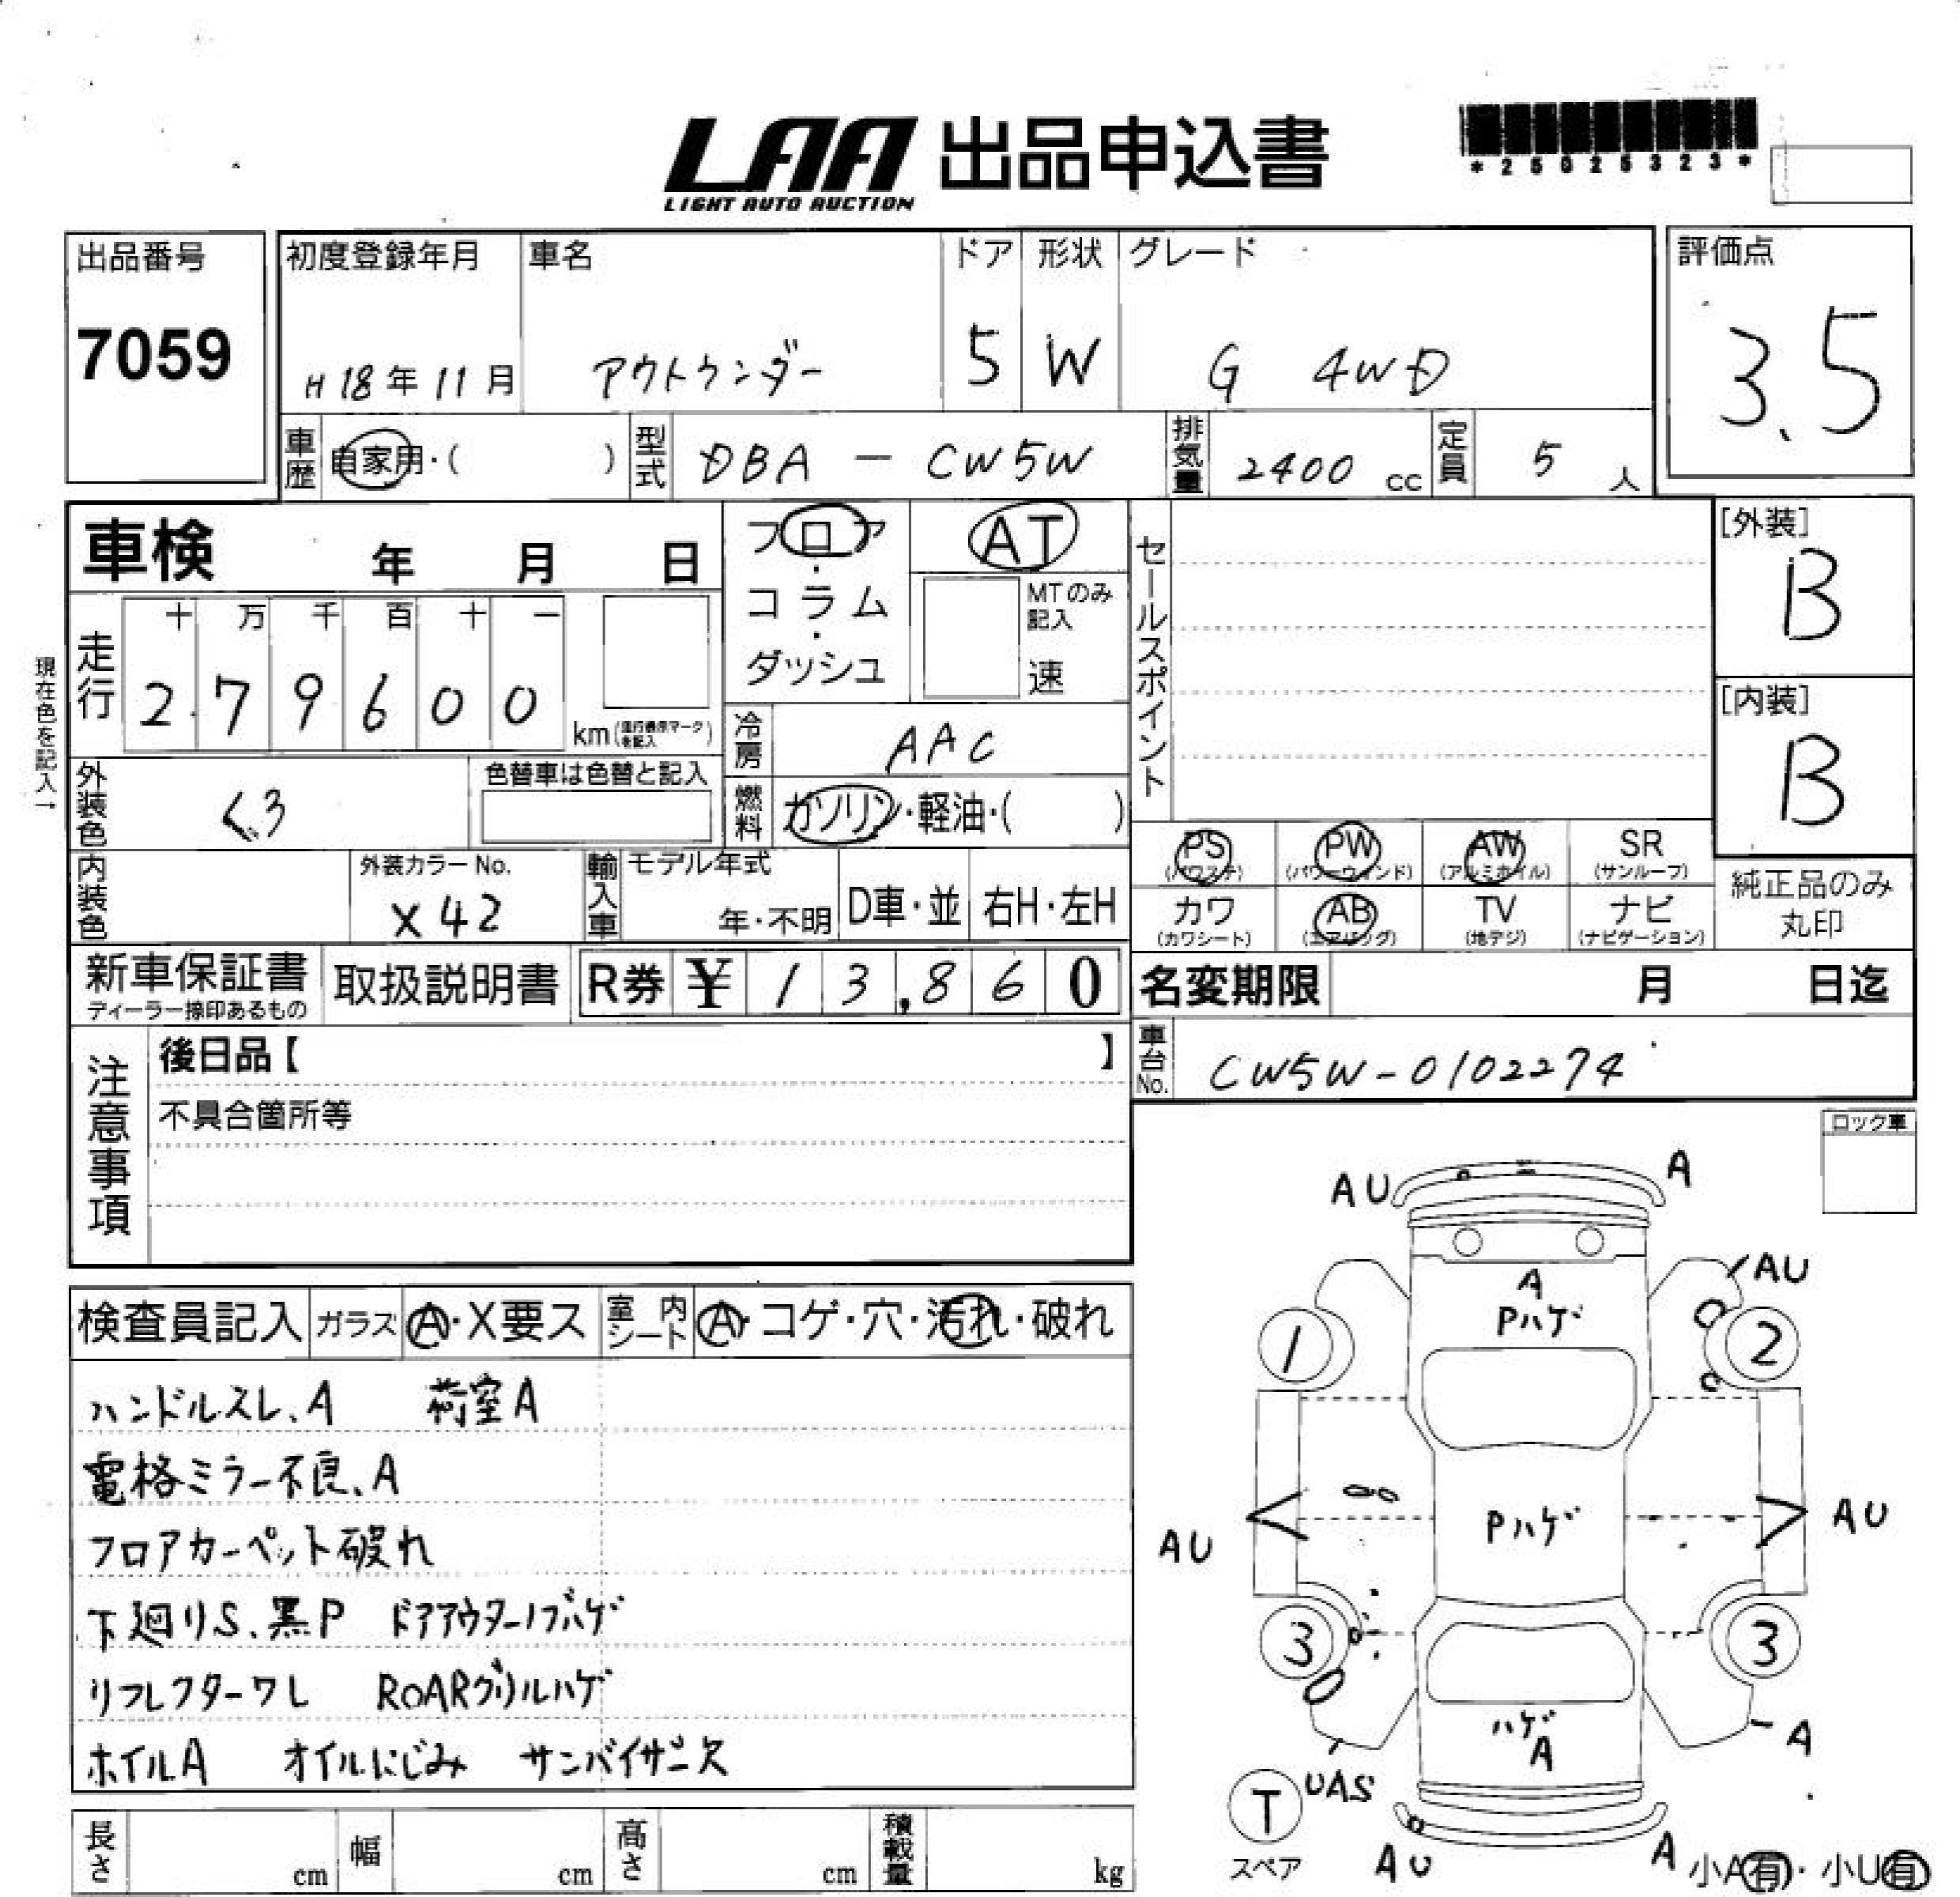 LAA 出品申込書
LIGHT AUTO AUCTION
*25025323*
出品番号
7059
初度登録年月
H18年11月
車名
アウトランダー
ドア
5
形状
W
グレード
G 4WD
評価点
3.5
車歴 自家用・( )
型式 DBA-CW5W
排気量 2400 cc
定員 5 人
車検 年 月 日
フロア・コラム・ダッシュ
AT
MTのみ記入
速
セールスポイント
[外装]
B
[内装]
B
現在色を記入→
走行
十 万 千 百 十 一
2 7 9 6 0 0
km(走行表示マークを記入)
冷房 AAC
外装色 くろ
色替車は色替と記入
燃料 ガソリン・軽油・( )
PS (パワステ)
PW (パワーウィンド)
AW (アルミホイル)
SR (サンルーフ)
カワ (カワシート)
AB (エアバッグ)
TV (地デジ)
ナビ (ナビゲーション)
純正品のみ
丸印
内装色
外装カラーNo.
X42
輸入車
モデル年式
年・不明
D車・並
右H・左H
新車保証書
ディーラー捺印あるもの
取扱説明書
R券 ¥ 13,860
名変期限 月 日迄
車台No. CW5W-0102274
注意事項
後日品【 】
不具合箇所等
ロック車
検査員記入
ガラス A・X要ス
室内シート A・コゲ・穴・汚れ・破れ
ハンドルスレ、A 荷室A
電格ミラー不良、A
フロアカーペット破れ
下廻りS、黒P ドアアウターノブハゲ
リフレクターワレ ROARグリルハゲ
ホイルA オイルにじみ サンバイザー欠
AU A
AU
A
Pハゲ
1 2
AU Pハゲ AU
3 3
ハゲ
A
A
UAS
T
スペア
AU A
小A有・小U有
長さ cm
幅 cm
高さ cm
積載量 kg